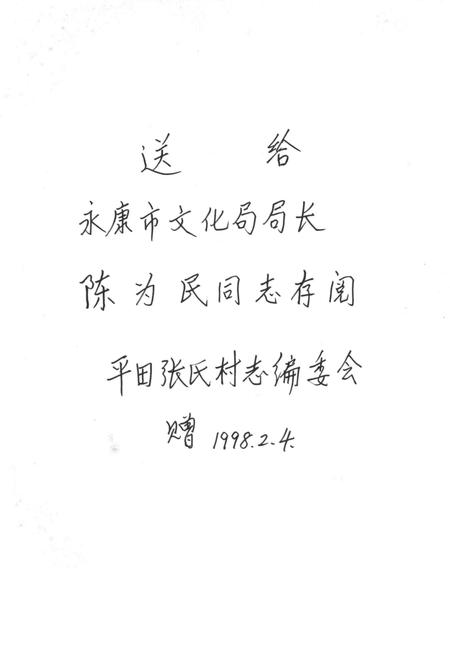 送 给
永康市文化局局长
陈为民同志存阅
平田张氏村志编委会
赠 1998.2.4.